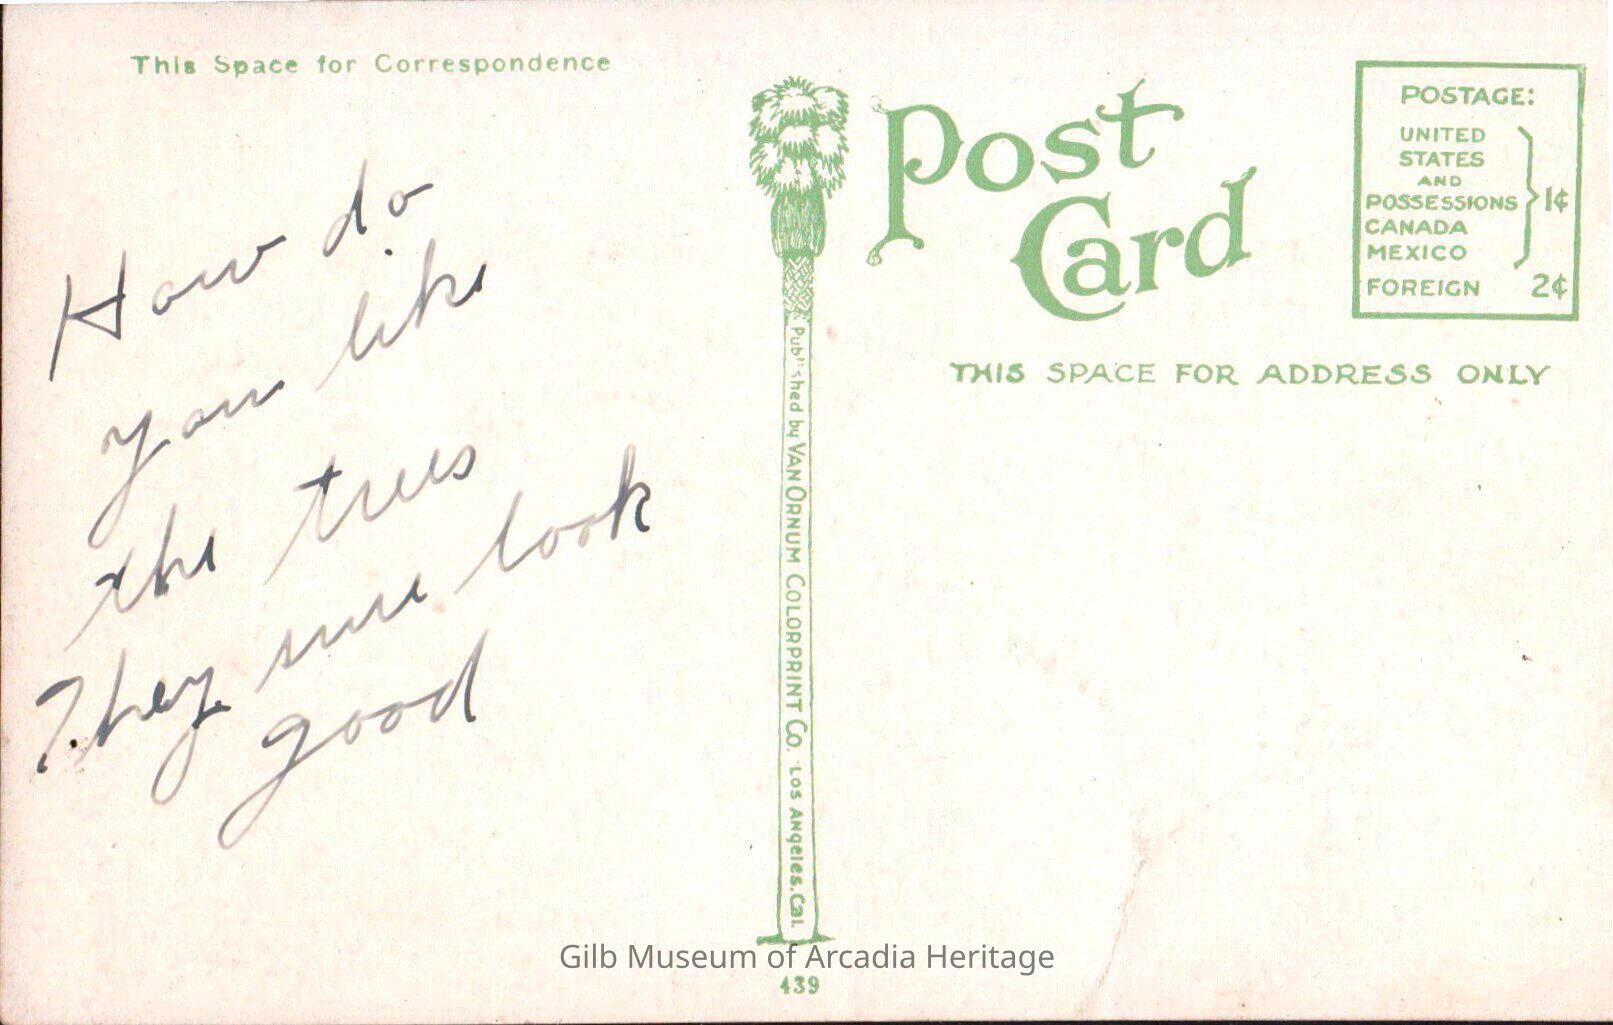 This Space for Correspondence
How do
you like
the trees
They sure look
good
Post
Card
POSTAGE:
UNITED
STATES
AND
POSSESSIONS
CANADA
MEXICO
1¢
FOREIGN 2¢
THIS SPACE FOR ADDRESS ONLY
Published by VAN ORNUM COLORPRINT Co. Los Angeles, Cal.
Gilb Museum of Arcadia Heritage
439